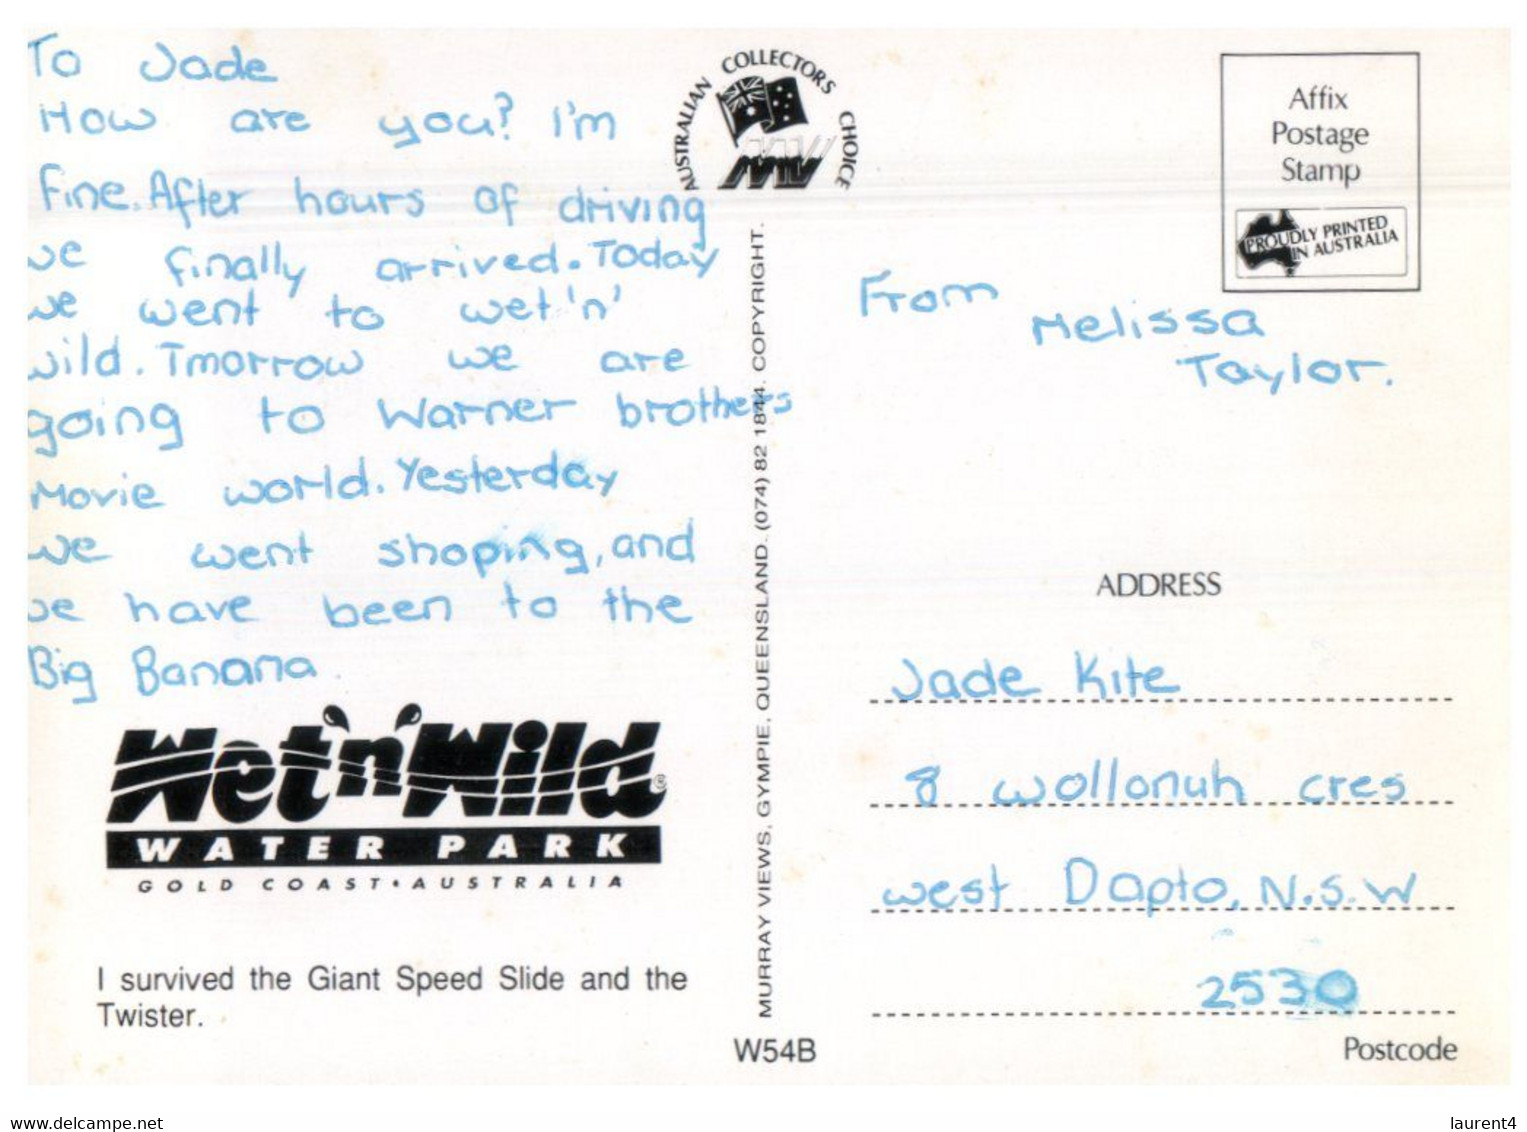 To Jade
How are you? I'm
Fine. After hours of driving
we finally arrived. Today
we went to wet 'n'
wild. Tmorrow we are
going to Warner brothers
Movie world. Yesterday
we went shoping, and
we have been to the
Big Banana.
Wet'n'Wild®
WATER PARK
GOLD COAST • AUSTRALIA
I survived the Giant Speed Slide and the
Twister.
AUSTRALIAN COLLECTORS CHOICE
MURRAY VIEWS, GYMPIE, QUEENSLAND. (074) 82 1844. COPYRIGHT.
W54B
Affix
Postage
Stamp
PROUDLY PRINTED
IN AUSTRALIA
From
Melissa
Taylor.
ADDRESS
Jade Kite
8 wollonuh cres
west Dapto, N.S.W
2530
Postcode
www.delcampe.net
laurent4